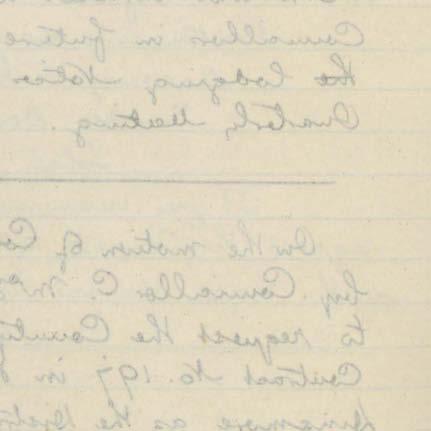 Councillor in future
the lodging Notice
Quarterly Meeting.
On the motion of Co
by Councillor C. Mc
to request the County
Contract No. 197 in
as the